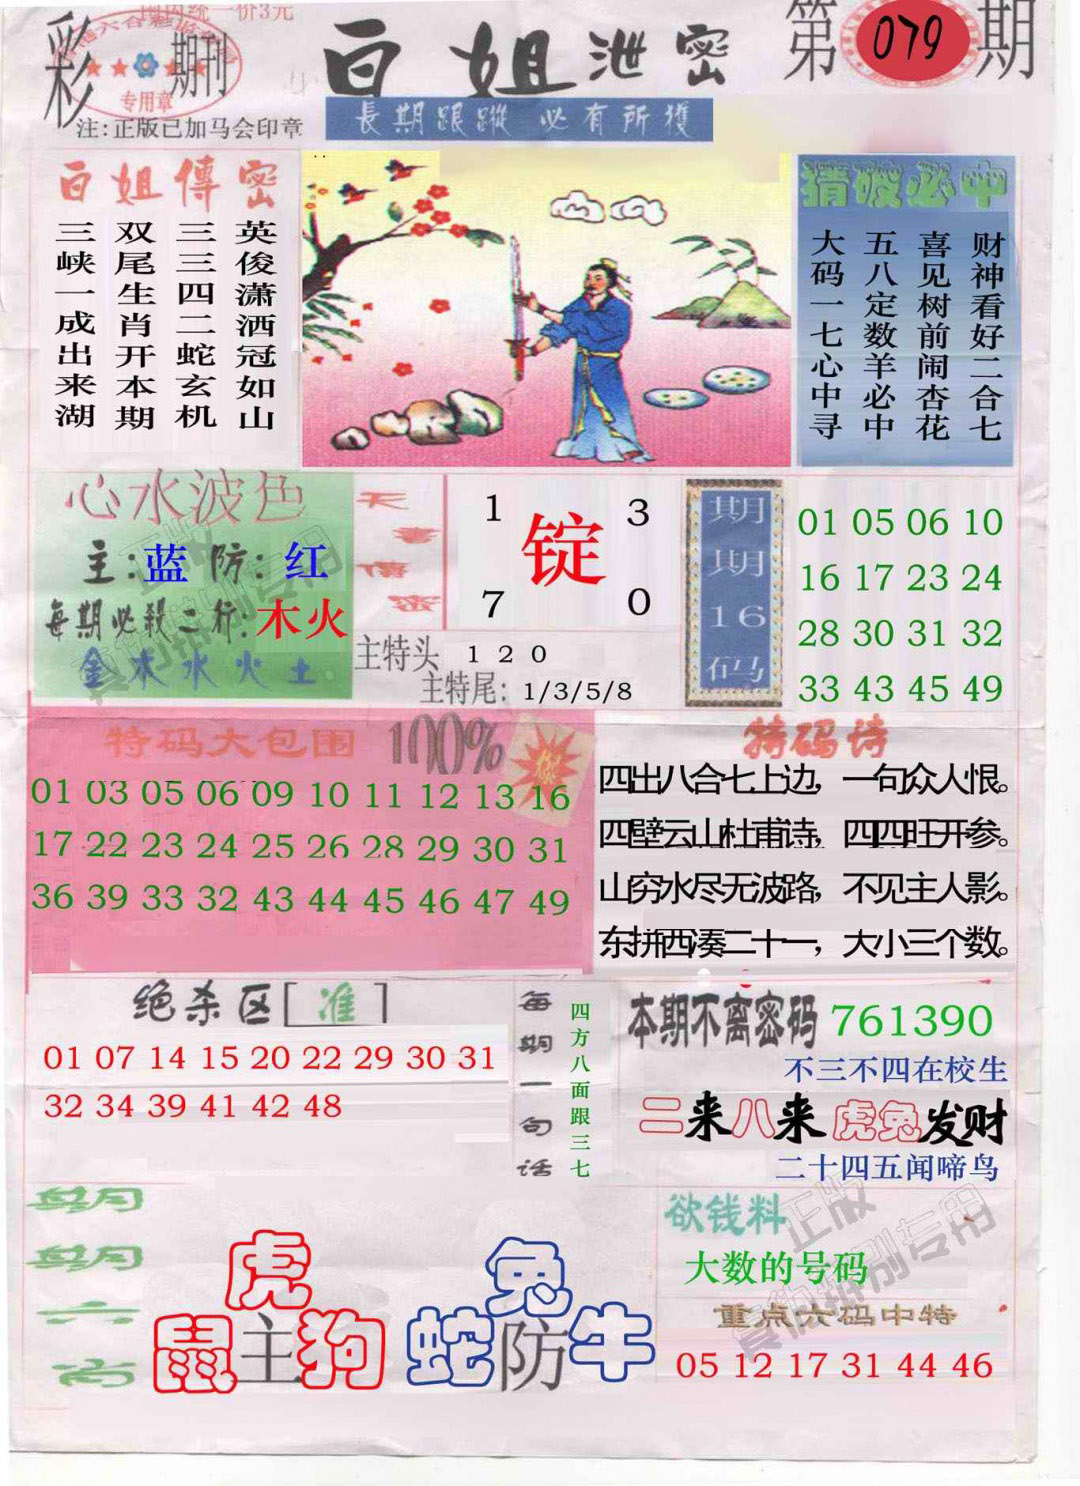 国内统一价3元
彩 期刊
专用章
白姐泄密
第079期
注:正版已加马会印章
長期跟蹤 必有所獲
白姐傳密
英俊潇洒冠如山
三三四二蛇玄机
双尾生肖开本期
三峡一成出来湖
猜破必中
财神看好二合七
喜见树前闹杏花
五八定数羊必中
大码一七心中寻
心水波色
主:蓝 防:红
每期必殺二行:木火
金木水火土
天書傳密
1 3
锭
7 0
主特头 1 2 0
主特尾: 1/3/5/8
期期16码
01 05 06 10
16 17 23 24
28 30 31 32
33 43 45 49
特码大包围 100%
01 03 05 06 09 10 11 12 13 16
17 22 23 24 25 26 28 29 30 31
36 39 33 32 43 44 45 46 47 49
特码诗
四出八合七上边,一句众人恨。
四壁云山杜甫诗,四四旺开参。
山穷水尽无波路,不见主人影。
东拼西凑二十一,大小三个数。
绝杀区[准]
01 07 14 15 20 22 29 30 31
32 34 39 41 42 48
每期一句话
四方八面跟三七
本期不离密码 761390
不三不四在校生
二来八来 虎兔发财
二十四五闻啼鸟
期期六肖
虎
鼠主狗
兔
蛇防牛
欲钱料
大数的号码
重点六码中特
05 12 17 31 44 46